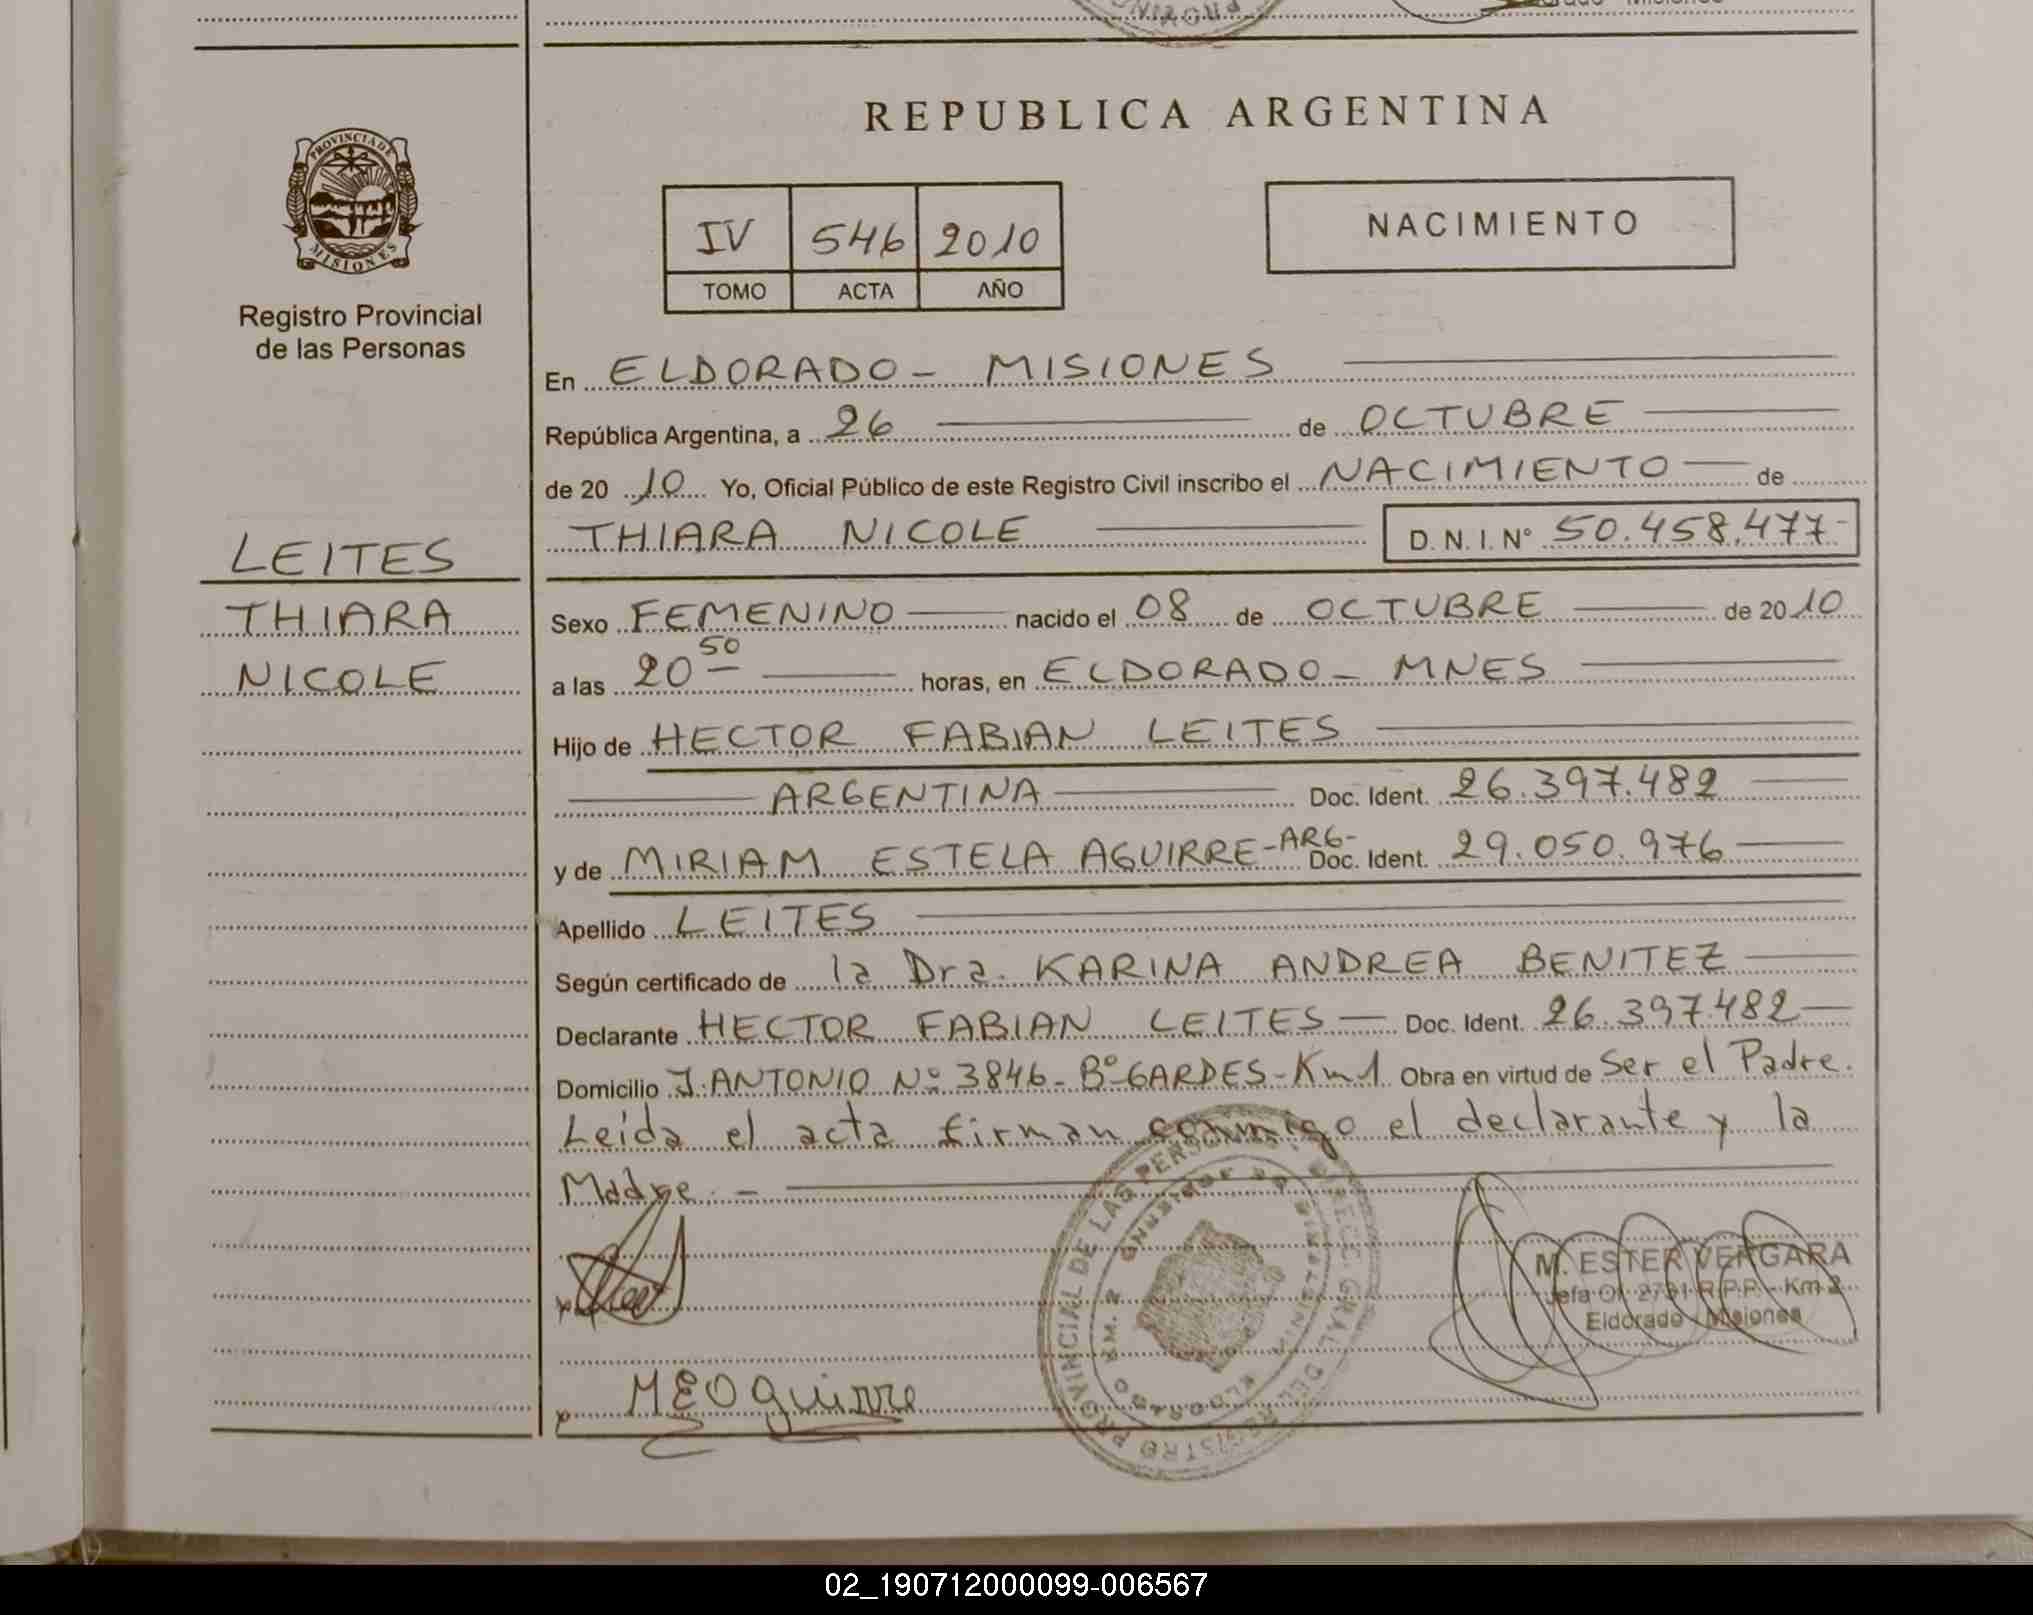 REPUBLICA ARGENTINA
PROVINCIA DE MISIONES
Registro Provincial
de las Personas
IV 546 2010
TOMO ACTA AÑO
NACIMIENTO
En ELDORADO - MISIONES
República Argentina, a 26 de OCTUBRE
de 20 10 Yo, Oficial Público de este Registro Civil inscribo el NACIMIENTO de
THIARA NICOLE D.N.I. Nº 50.458.477-
LEITES
THIARA
NICOLE
Sexo FEMENINO nacido el 08 de OCTUBRE de 2010
a las 20 50 horas, en ELDORADO - MNES
Hijo de HECTOR FABIAN LEITES
ARGENTINA Doc. Ident. 26.397.482
y de MIRIAM ESTELA AGUIRRE - ARG - Doc. Ident. 29.050.976
Apellido LEITES
Según certificado de la Dra. KARINA ANDREA BENITEZ
Declarante HECTOR FABIAN LEITES Doc. Ident. 26.397.482
Domicilio J. ANTONIO Nº 3846 - Bº GARDES - Km 1 Obra en virtud de Ser el Padre.
Leída el acta firman conmigo el declarante y la
Madre. -
M. ESTER VERGARA
Jefa Of. 2731 R.P.P. - Km 2
Eldorado - Misiones
MEAguirre
02_190712000099-006567